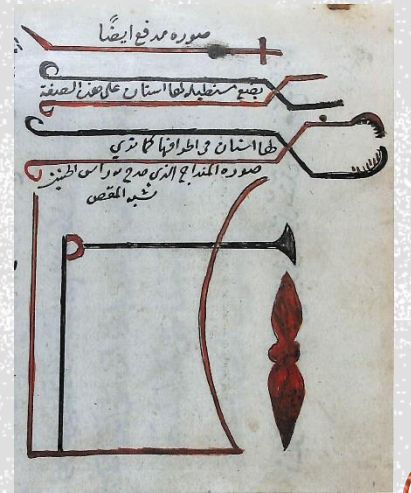 صوره مدفع ايضًا
يضع مستطيله لها اسنان على هذه الصفة
لها اسنان فى اطرافها كما ترى
صوره المنداخ الذى صدخ به راس الجنين
شبه المقص